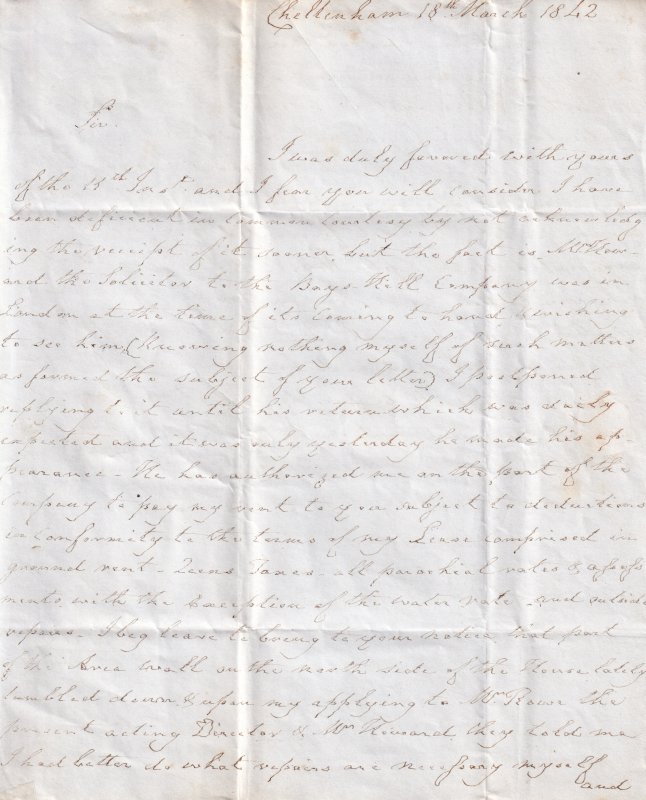 Cheltenham 18th March 1842
Sir.
I was duly favored with yours
of the 15th Inst. and I fear you will consider I have
been deficient in common courtesy by not acknowledg
ing the receipt of it sooner, but the fact is, Mr
and the Solicitor to the Bays Hill Company was in
London at the time of its coming to hand & wishing
to see him, (knowing nothing myself of such matters
as formed the subject of your letter) I postponed
replying to it until his return which was daily
expected and it was only yesterday he made his ap-
pearance - He has authorized me on the part of the
Company to pay my rent to you subject to deductions
in conformity to the terms of my Lease comprised in
ground rent - Queens Taxes - all parochial rates & assess
ments with the exception of the water rate - and outside
repairs - I beg leave to bring to your notice that part
of the Area wall on the north side of the House lately
tumbled down & upon my applying to Mr. Rowe the
present acting Director & Mr they told me
I had better do what repairs are necessary myself
and